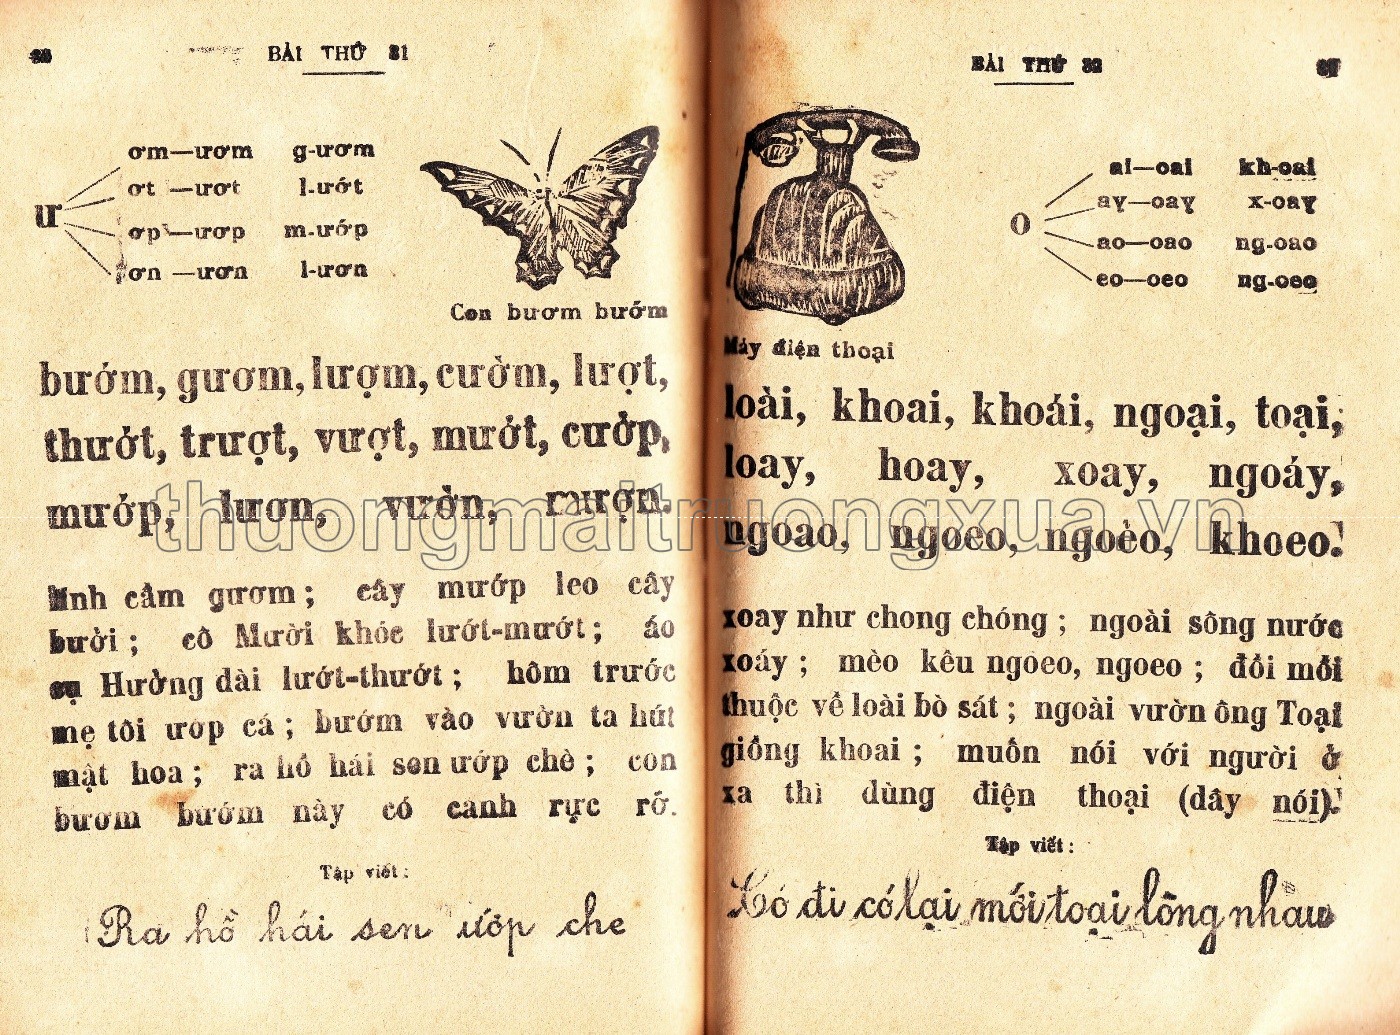 BÀI THỨ 31
ơm—ươm g-ươm
ơt —ươt l-ướt
ư
ơp—ươp m-ướp
ơn —ươn l-ươn
Con bươm bướm
bướm, gươm, lượm, cườm, lượt,
thướt, trượt, vượt, mướt, cướp,
mướp, lươn, vườn, mượn.
cầm gươm ; cây mướp leo cây
bưởi ; cô Mười khóc lướt-mướt ; áo
cụ Hường dài lướt-thướt ; hôm trước
mẹ tôi ướp cá ; bướm vào vườn ta hút
mật hoa ; ra hồ hái sen ướp chè ; con
bươm bướm này có cánh rực rỡ.
Tập viết :
Ra hồ hái sen ướp che
BÀI THỨ 32
ai—oai kh-oai
ay—oay x-oay
o
ao—oao ng-oao
eo—oeo ng-oeo
Máy điện thoại
loài, khoai, khoái, ngoại, toại,
loay, hoay, xoay, ngoáy,
ngoao, ngoeo, ngoèo, khoeo.
xoay như chong chóng ; ngoài sông nước
xoáy ; mèo kêu ngoeo, ngoeo ; đồi mồi
thuộc về loài bò sát ; ngoài vườn ông Toại
giồng khoai ; muốn nói với người ở
xa thì dùng điện thoại (dây nói).
Tập viết :
Có đi có lại mới toại lòng nhau
thuongmaitruongxua.vn